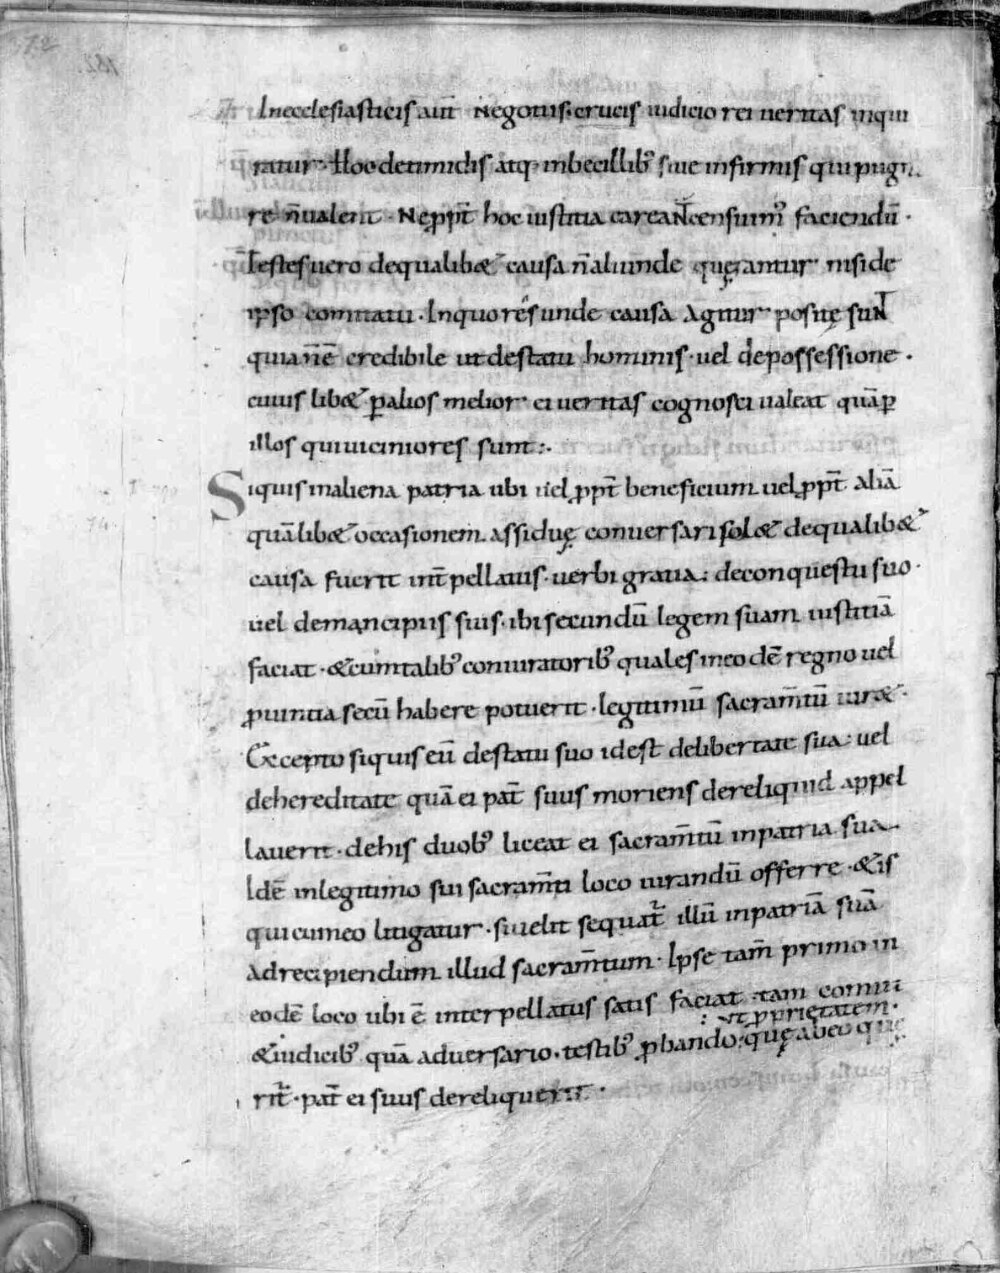 In ecclesiasticis aut̄ negotiis · crucis iudicio rei ueritas inqui
ratur · Hoc de timidis atq· inbecillib; siue infirmis qui pugn
re n̄ ualent · Ne ꝓpt̄ hoc iustitia careaNT censuim; faciendū ·
Testes uero de qualib& causa n̄ aliunde quęrantur nisi de
ipso comitatu · In quo res unde causa agitur positę suNT
quia n̄ ē credibile ut de statu hominis · uel de possessione ·
cuius lib& ꝑ alios melior ei ueritas cognosci ualeat quā ꝑ
illos qui uiciniores sunt :·
Siquis in aliena patria ubi uel ꝓpt̄ beneficium uel ꝓpt̄ aliā
quālib& occasionem assiduę conuersari sol& de qualib&
causa fuerit int̄pellatus · uerbi gratia : de conquestu suo ·
uel de mancipiis suis · ibi secundū legem suam iustitiā
faciat · & cum talib; coniuratorib; quales in eodē regno uel
ꝓuintia secū habere potuerit · legitimū sacram̄tū iur& ·
Excepto siquis eū de statu suo id est de libertate sua : uel
de hereditate quā ei pat̄ suus moriens dereliquid appel
lauerit · de his duob; liceat ei sacram̄tū in patria sua
Idē in legitimo sui sacram̄ti loco iurandū offerre · & is
qui cum eo litigatur · si uelit sequat̄ illū in patriā suā
ad recipiendum illud sacram̄tum · Ipse tam̄ primo in
eodē loco ubi ē interpellatus satis faciat · tam comiti
: ut ꝓprietatem ·
& iudicib; quā aduersario · testib; ꝓbando : quę ab eo quę
rit̄ · pat̄ ei suus dereliquerit ·